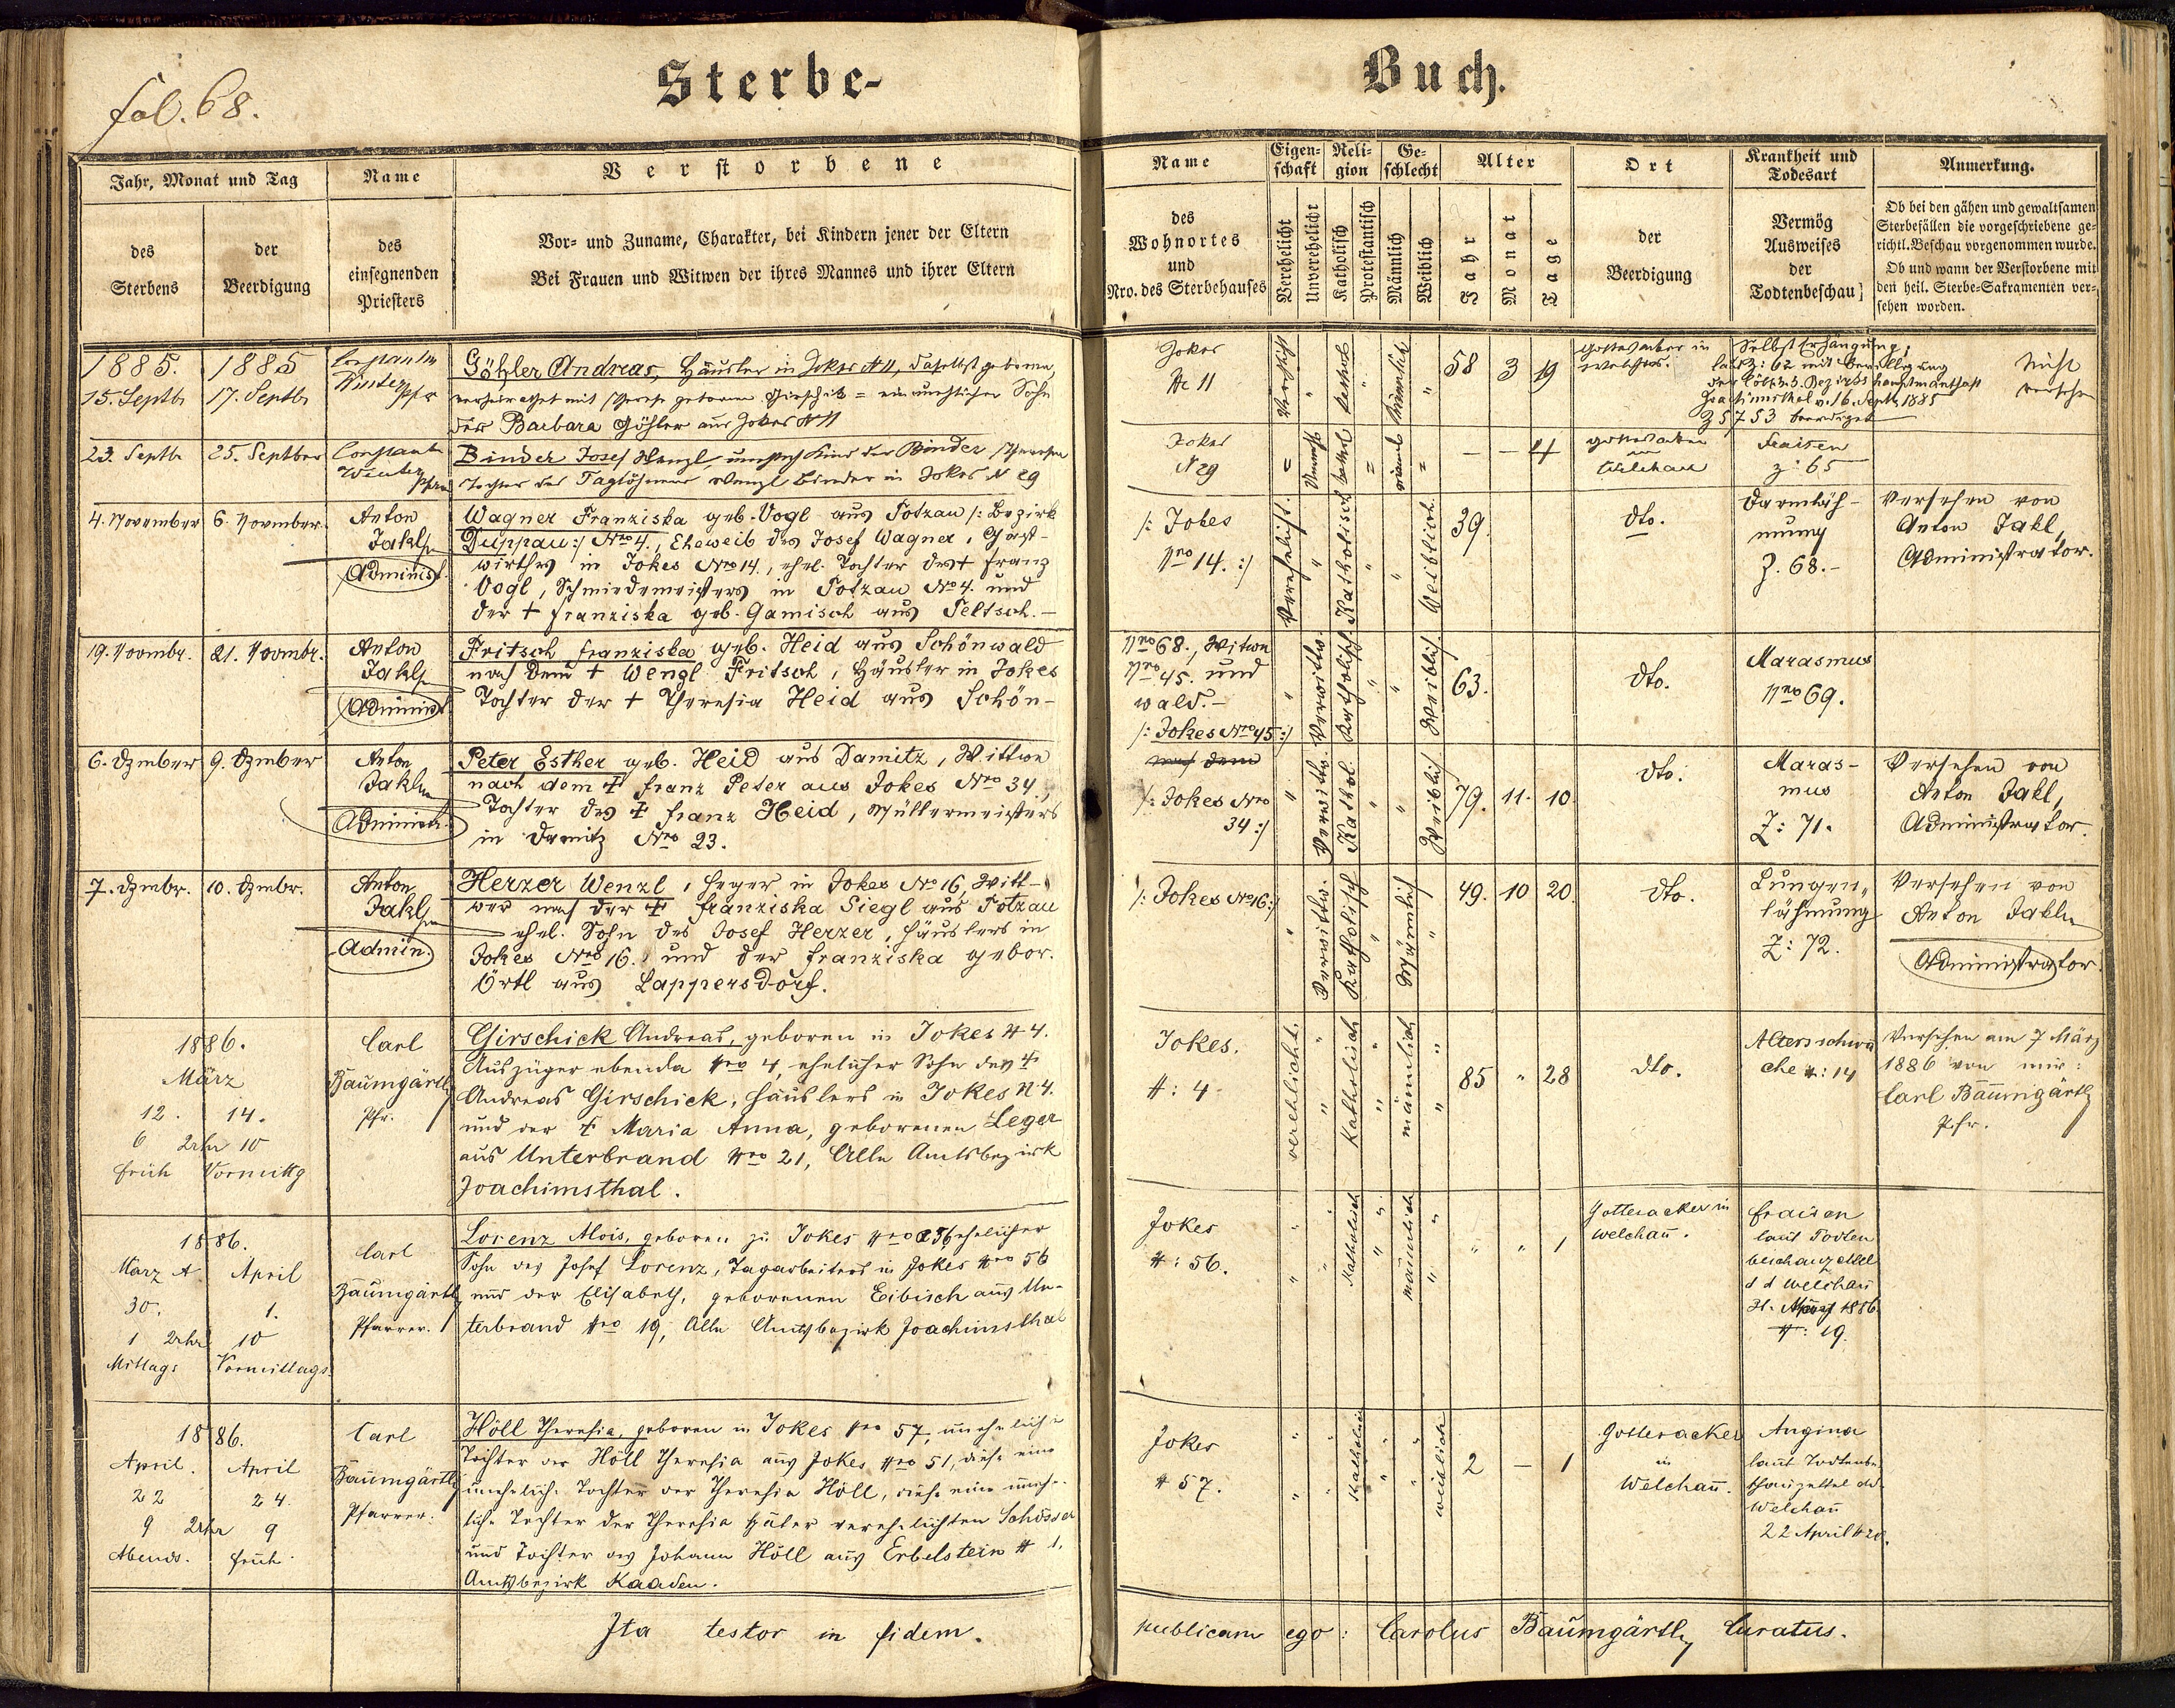 fol. 68.
Sterbe-
Buch.
Jahr, Monat und Tag
des Sterbens
der Beerdigung
Name
des einsegnenden Priesters
Verstorbene
Vor- und Zuname, Charakter, bei Kindern jener der Eltern
Bei Frauen und Witwen der ihres Mannes und ihrer Eltern
Name
des Wohnortes und Nro. des Sterbehauses
Eigenschaft
Verehelicht
Unverehelicht
Religion
Katholisch
Protestantisch
Geschlecht
Männlich
Weiblich
Alter
Jahr
Monat
Tage
Ort
der Beerdigung
Krankheit und Todesart
Vermög Ausweises der Todtenbeschau
Anmerkung.
Ob bei den gähen und gewaltsamen
Sterbefällen die vorgeschriebene ge-
richtl. Beschau vorgenommen wurde.
Ob und wann der Verstorbene mit
den heil. Sterbe-Sakramenten ver-
sehen worden.
1885. 1885
15. Septb 17. Septb
Winter Pfr
Göhler Andreas, Häusler in Jokes N 11, daselbst geboren
verheirathet mit Therese geborene Girschik = ein unehlicher Sohn
der Barbara Göhler aus Jokes N 11
Jokes
N 11
58 3 19
Gottesacker in
Welchau
Selbst Erhängung,
laut Z: 62 mit Bewilligung
der löbl. k. k. Bezirkshauptmannschaft
Joachimsthal v. 16. Septb 1885
Z 5753 beerdigt
Nicht
versehen
23. Septb 25. Septber
Winter Pfr
Binder Josef Wenzl, unehel Kind der Binder Theresia
Tochter des Taglöhners Wenzl Binder in Jokes N 29
Jokes
N 29
– – 4
Gottesacker
in
Welchau
Fraisen
Z: 65
4. November 6. November
Anton
Jakl
Administ.
Wagner Franziska geb. Vogl aus Totzau /: Bezirk
Duppau :/ Nro 4., Eheweib des Josef Wagner, Gast-
wirthes in Jokes Nro 14., ehel. Tochter des † Franz
Vogl, Schmiedemeisters in Totzau No 4. und
der † Franziska geb. Gamisch aus Teltsch. –
/: Jokes
Nro 14. :/
Verehelicht. Katholisch Weiblich.
39.
dto.
Darmläh-
mung
Z. 68. –
Versehen von
Anton Jakl,
Administrator.
19. Novmbr. 21. Novmbr.
Anton
Jakl
Administ.
Fritsch Franziska geb. Heid aus Schönwald
nach dem † Wenzl Fritsch, Häusler in Jokes
Tochter der † Theresia Heid aus Schön-
Nro 68., Witwe
Nro 45. und
wald. –
/: Jokes Nro 45 :/
Verwittw. Katholisch Weiblich.
63.
dto.
Marasmus
Nro 69.
6. Dzmber 9. Dzmber
Anton
Jakl
Administ.
Peter Esther geb. Heid aus Damitz, Wittwe
nach dem † Franz Peter aus Jokes Nro 34.,
Tochter des † Franz Heid, Müllermeisters
in Damitz Nro 23.
nach dem
/: Jokes Nro
34 :/
Verwittw. Kathol. Weiblich.
79. 11. 10.
dto.
Maras-
mus
Z: 71.
Versehen von
Anton Jakl,
Administrator.
7. Dzmbr. 10. Dzmbr.
Anton
Jakl
Admin.
Herzer Wenzl, Heger in Jokes No 16, Witt-
wer nach der † Franziska Siegl aus Totzau
ehel. Sohn des Josef Herzer, Häuslers in
Jokes Nro 16. und der Franziska gebor.
Örtl aus Lappersdorf.
/: Jokes No 16 :/
Verwittw. Katholisch Männlich
49. 10 20.
dto.
Lungen-
lähmung
Z: 72.
Versehen von
Anton Jakl
Administrator.
1886.
März
12. 14.
6 Uhr 10
früh Vormittg
Carl
Baumgärtl
Pfr.
Girschick Andreas, geboren in Jokes N 4.
Auszüger ebenda Nro 4, ehelicher Sohn des †
Andreas Girschick, Häuslers in Jokes N 4.
und der † Maria Anna, geborenen Leger
aus Unterbrand Nro 21, Alle Amtsbezirk
Joachimsthal.
Jokes.
N: 4
verehlicht. Katholisch männlich
85 " 28
dto.
Altersschwä
che N: 14
Versehen am 7 März
1886 von mir:
Carl Baumgärtl
Pfr.
1886.
März A. April
30. 1.
1 Uhr 10
Mittags Vormittags.
Carl
Baumgärtl
Pfarrer.
Lorenz Alois, geboren zu Jokes Nro 56 ehelicher
Sohn des Josef Lorenz, Tagarbeiters in Jokes Nro 56
und der Elisabeth, geborenen Eibisch aus Un-
terbrand Nro 19, Alle Amtsbezirk Joachimsthal
Jokes
N: 56.
Katholisch männlich
" " 1
Gottesacker in
Welchau.
Fraisen
laut Todten
beschauzettel
d d Welchau
31. März 1886.
N: 19.
1886.
April. April
22 24.
9 Uhr 9
Abends. früh.
Carl
Baumgärtl
Pfarrer.
Höll Theresia, geboren in Jokes Nro 57, uneheliche
Tochter der Höll Theresia aus Jokes Nro 51, diese eine
uneheliche Tochter der Theresia Höll, diese eine unehe-
liche Tochter der Theresia später verehelichten Schösser
und Tochter des Johann Höll aus Erbelstein N 1.
Amtsbezirk Kaaden.
Jokes
N 57.
Katholisch weiblich
2 – 1
Gottesacker
in
Welchau.
Angina
laut Todtenbe-
schauzettel dd
Welchau
22 April N 20.
Ita testor in fidem.
publicam ego: Carolus Baumgärtl, Curatus.